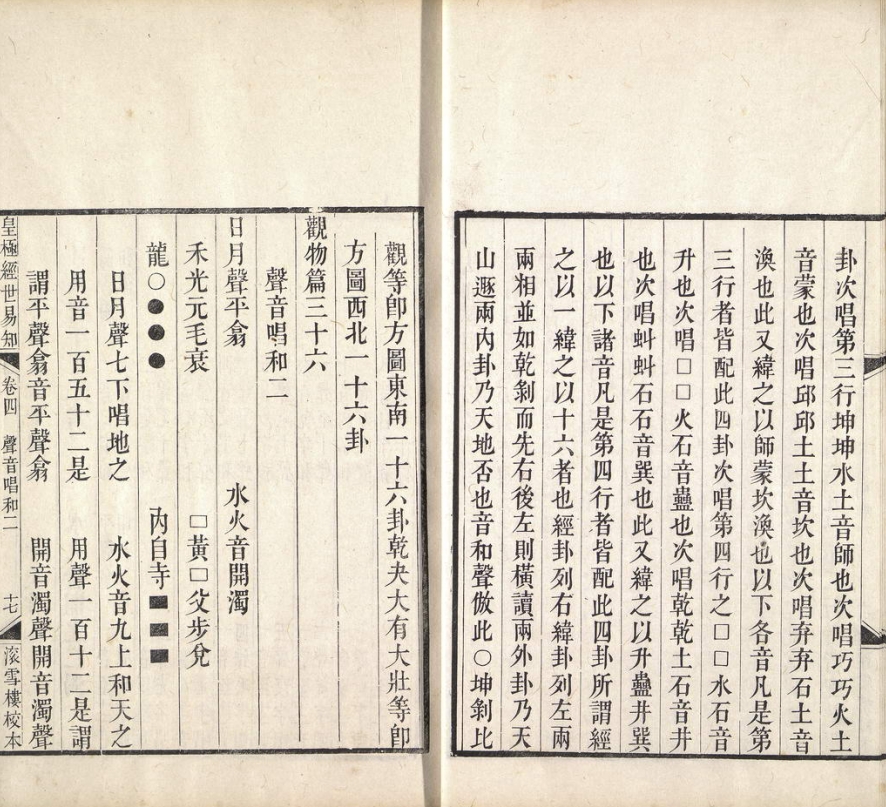 卦次唱第三行坤坤水土音師也次唱巧巧火土
音蒙也次唱邱邱土土音坎也次唱弃弃石土音
渙也此又緯之以師蒙坎渙也以下各音凡是第
三行者皆配此四卦次唱第四行之□□水石音
升也次唱□□火石音蠱也次唱乾乾土石音井
也次唱虯虯石石音巽也此又緯之以升蠱井巽
也以下諸音凡是第四行者皆配此四卦所謂經
之以一緯之以十六者也經卦列右緯卦列左兩
兩相並如乾剝而先右後左則橫讀兩外卦乃天
山遯兩內卦乃天地否也音和聲倣此○坤剝比
觀等卽方圖東南一十六卦乾夬大有大壯等卽
方圖西北一十六卦
觀物篇三十六
聲音唱和二
日月聲平翕 水火音開濁
禾光元毛衰 □黃□父步兌
龍○●●● 內自寺■■■
日月聲七下唱地之 水火音九上和天之
用音一百五十二是 用聲一百十二是謂
謂平聲翕音平聲翕 開音濁聲開音濁聲
皇極經世易知 卷四 聲音唱和二 十七 滚雪樓校本